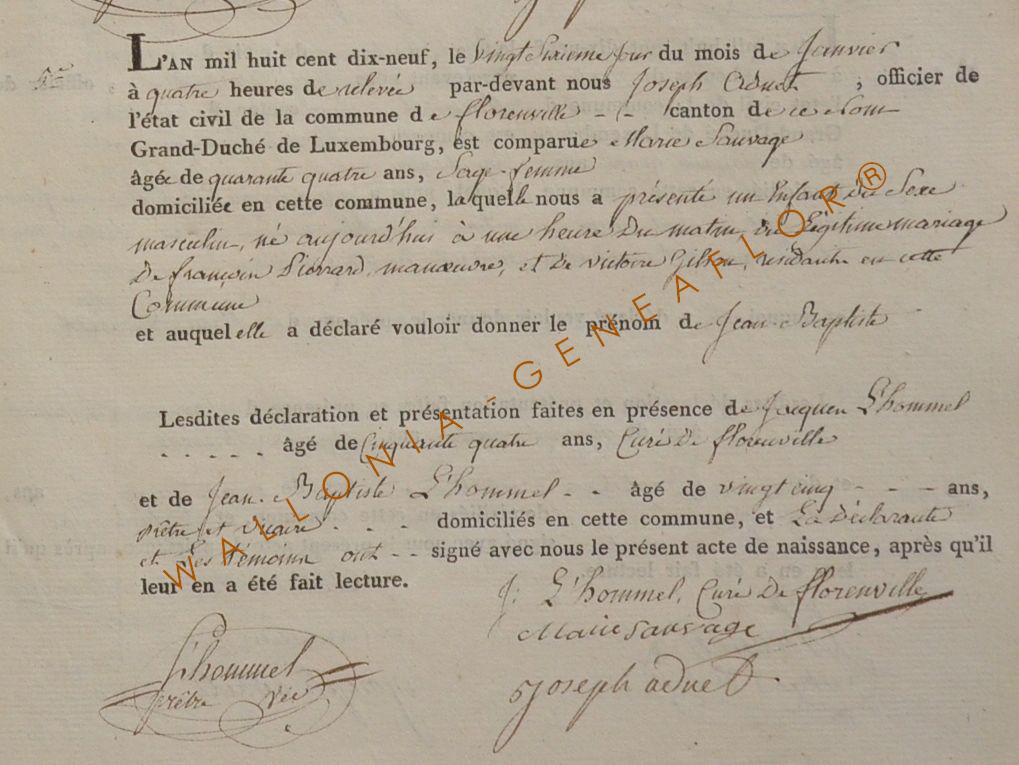 5me
L'AN mil huit cent dix-neuf, le Vingt Sixieme jour du mois de Janvier
à quatre heures de relevée par-devant nous Joseph Adnet, officier de
l'état civil de la commune de florenville - - canton de ce Nom
Grand-Duché de Luxembourg, est comparue Marie Sauvage
âgée de quarante quatre ans, Sage-femme
domiciliée en cette commune, laquelle nous a présenté un Enfant du Sexe
masculin, né aujourd'hui à une heure Du matin du Légitime mariage
De françois Pierrard, manœuvre, et De victoire Gilson, residante en cette
Commune
et auquel elle a déclaré vouloir donner le prénom de Jean-Baptiste
Lesdites déclaration et présentation faites en présence de Jacques L'hommel
. . . . . âgé de Cinquante quatre ans, Curé De florenville
et de Jean-Baptiste L'hommel - - âgé de vingt cinq - - - ans,
prêtre et vicaire - - - domiciliés en cette commune, et La Déclarante
et Les Témoins ont - - signé avec nous le présent acte de naissance, après qu'il
leur en a été fait lecture.
J: L'hommel, Curé De florenville
Marie Sauvage
L'hommel
prêtre Vic
Joseph adnet
WALLONIA-GENEAFLOR®